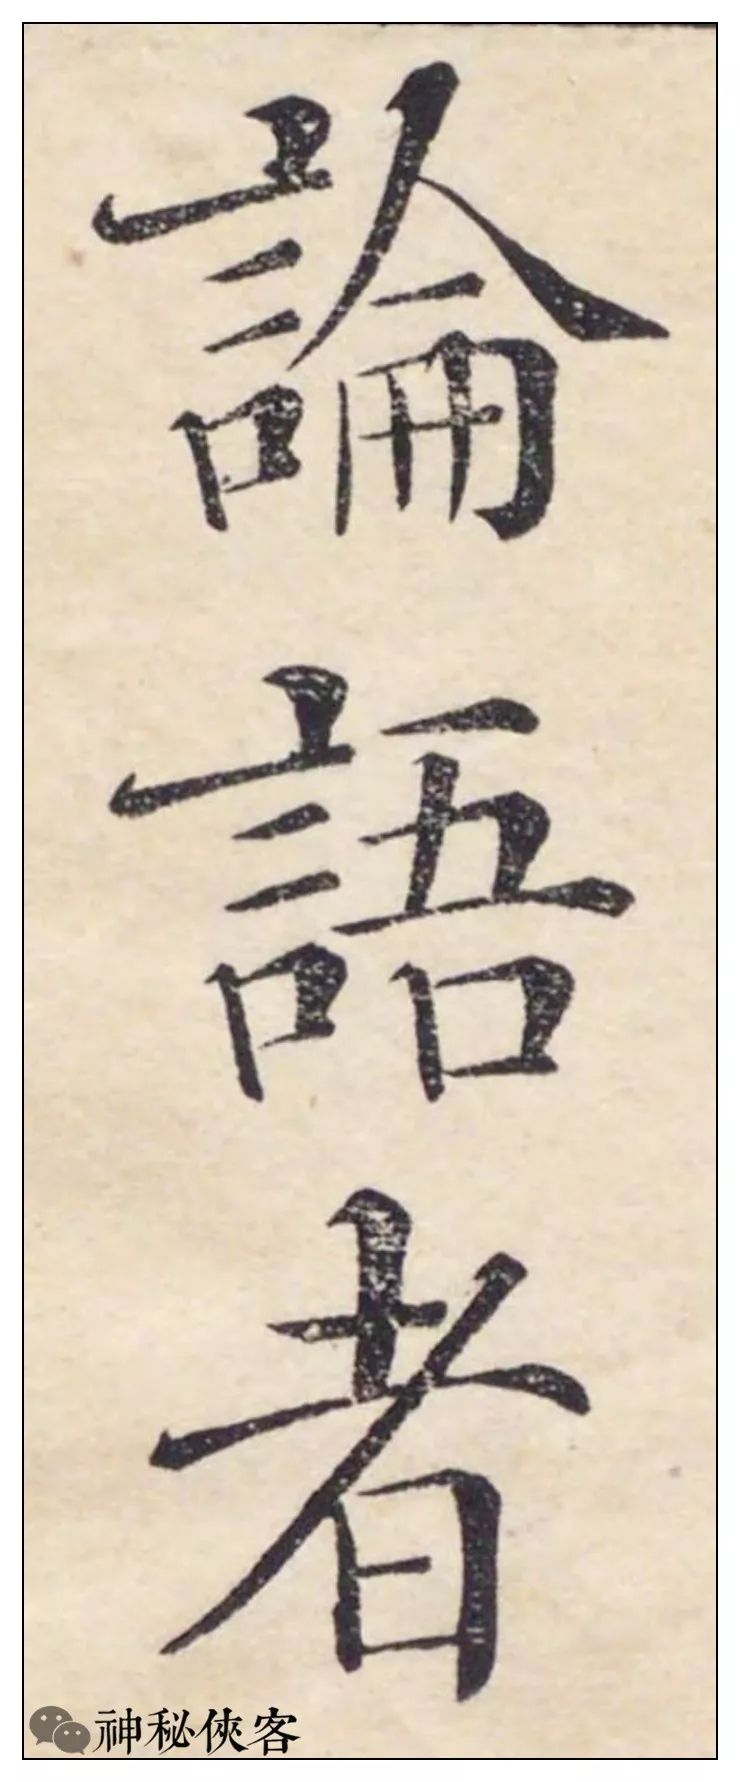 論語者
神秘俠客